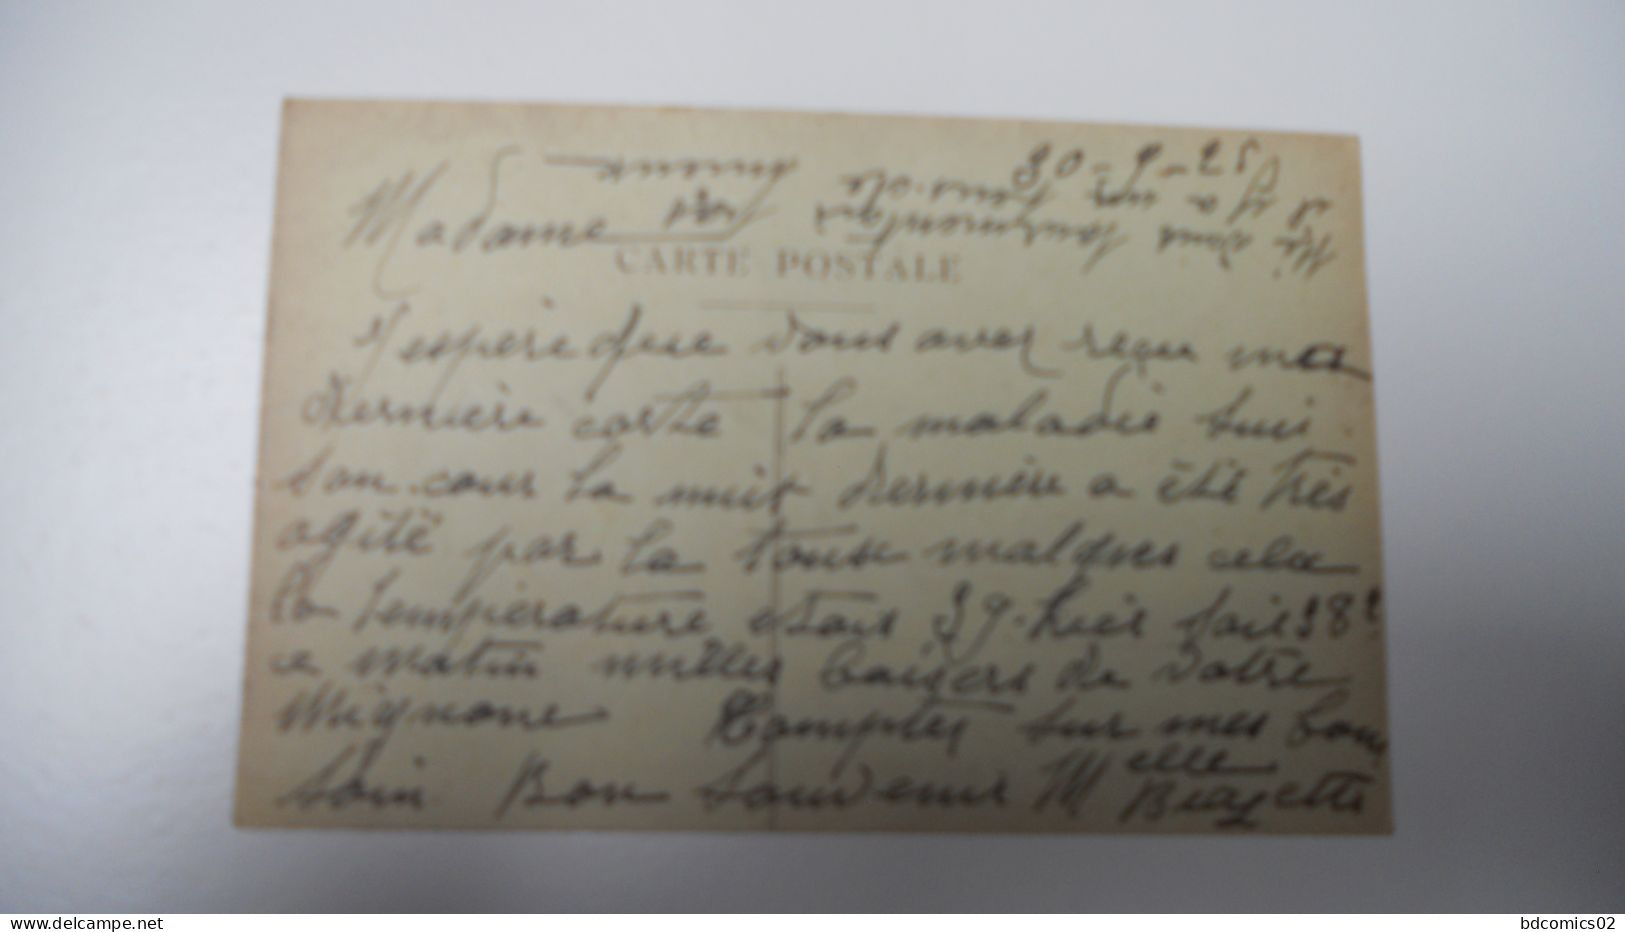 30-9-25
Madame
CARTE POSTALE
J'espère que vous avez reçu ma
dernière carte la maladie suis
son cour la nuit dernière a été très
agité par la toux malgres cela
la température etais 39. hier soir 38
ce matin milles baisers de votre
Mignone Comptez sur mes bons
soin Bon souvenir Melle
www.delcampe.net
bdcomics02